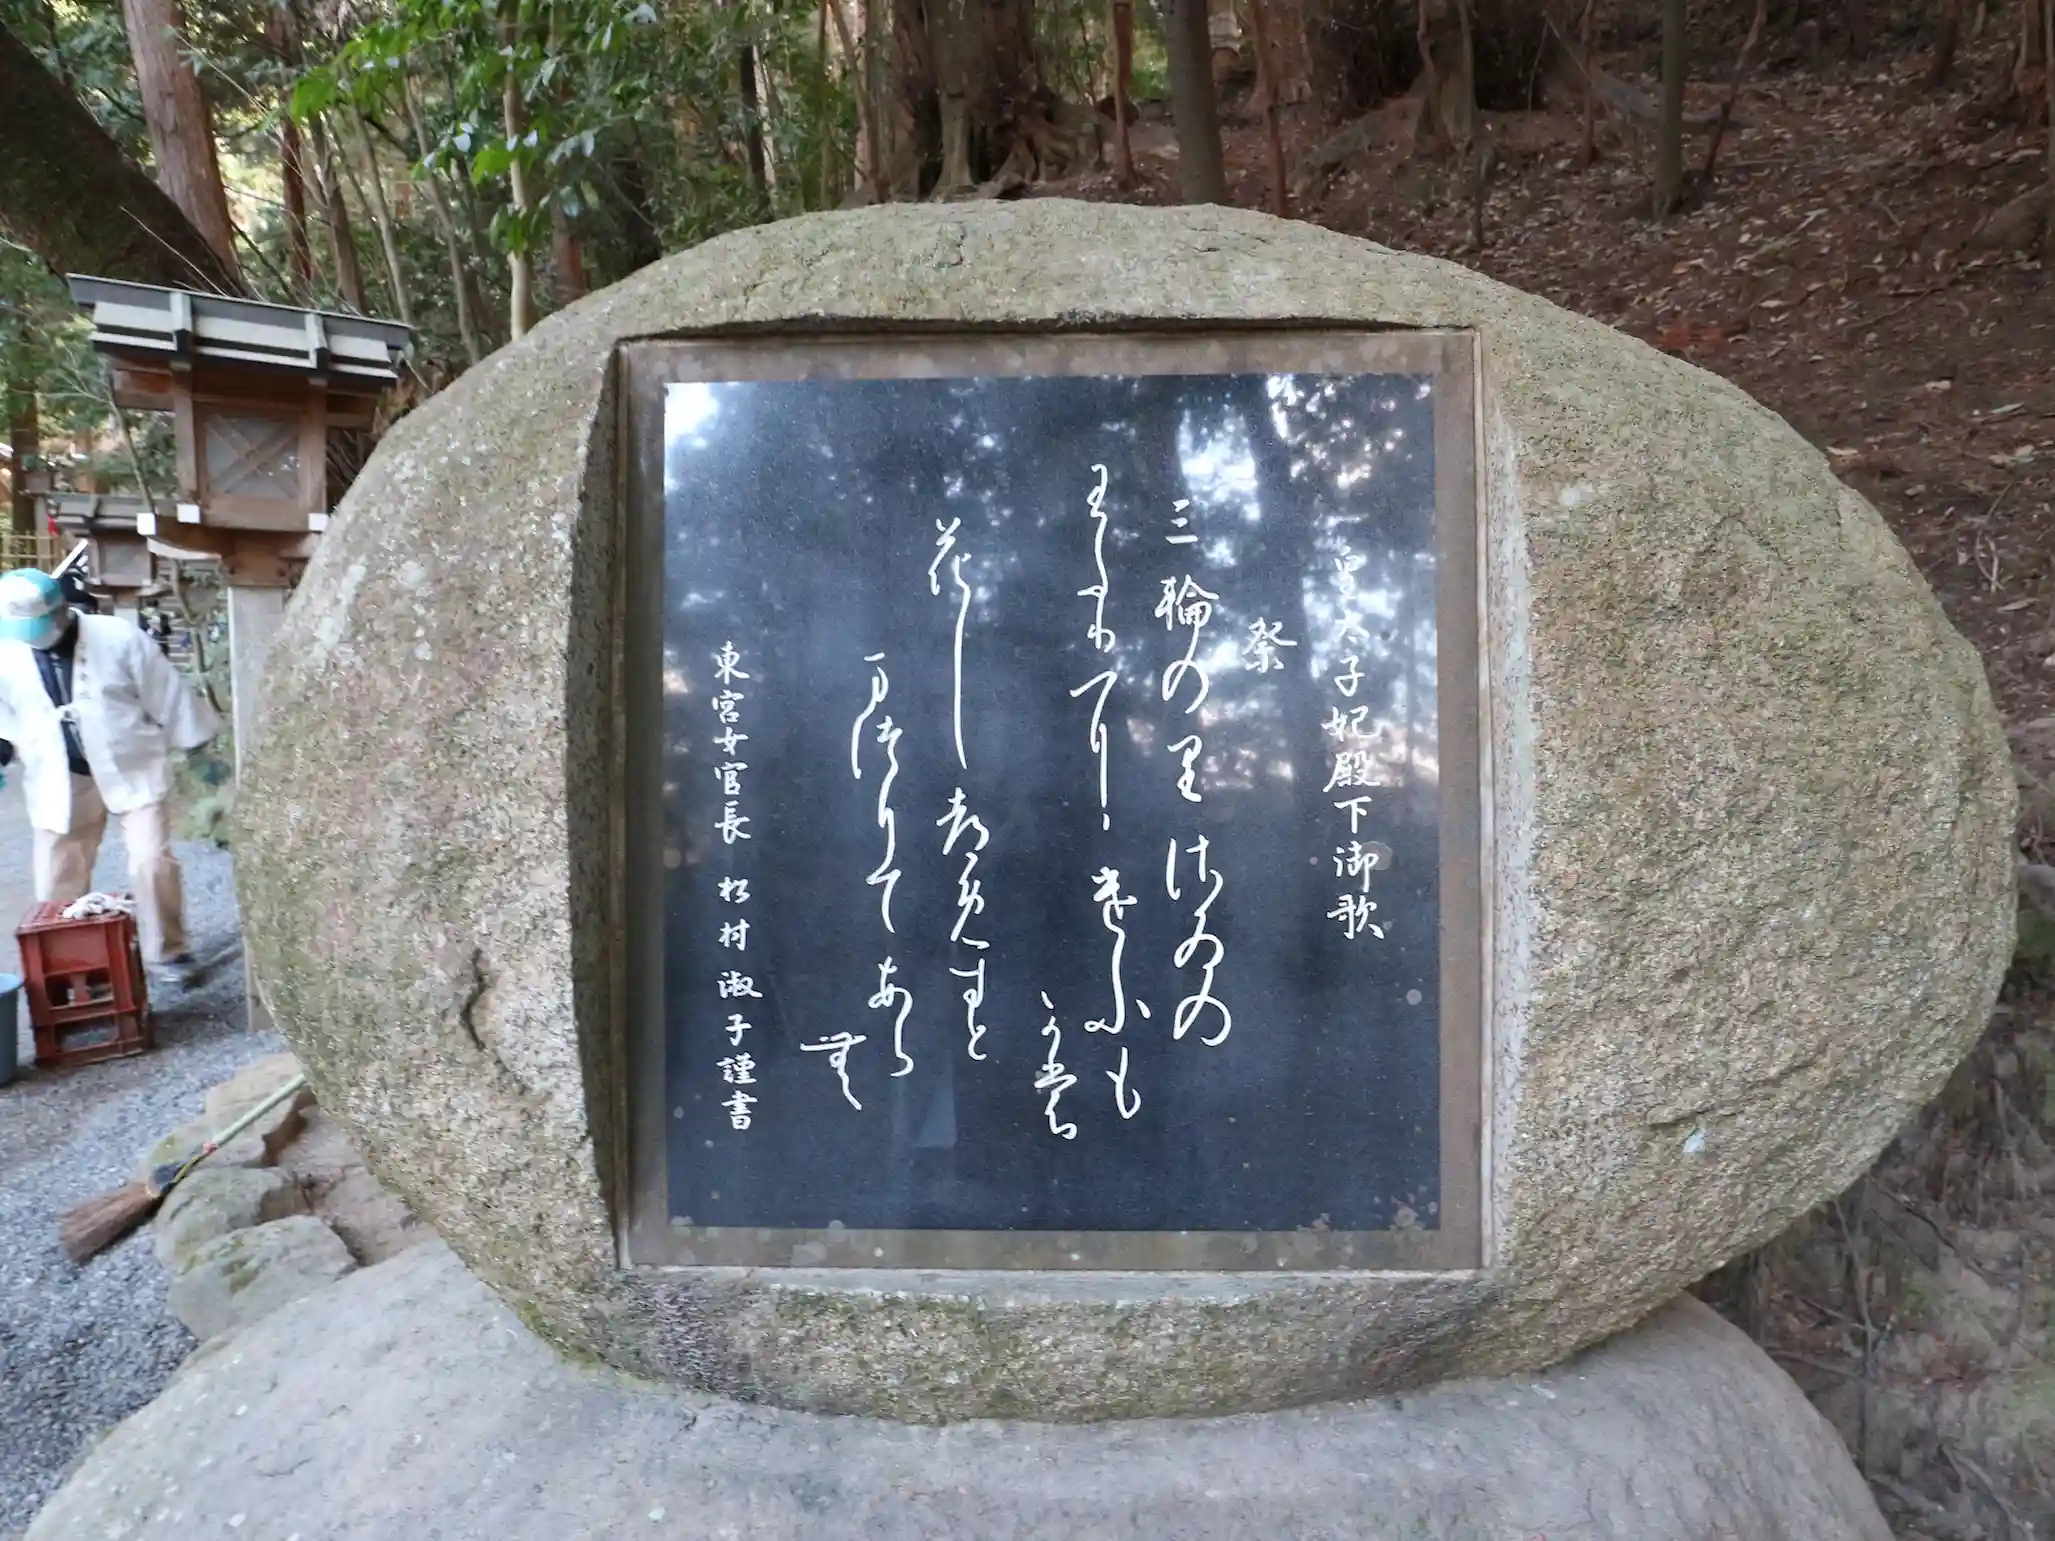 皇太子妃殿下御歌
祭
三輪の里佐ゐの
わたりにけふも
かも
花しづめすと
まつりてあら
無
東宮女官長 松村淑子謹書